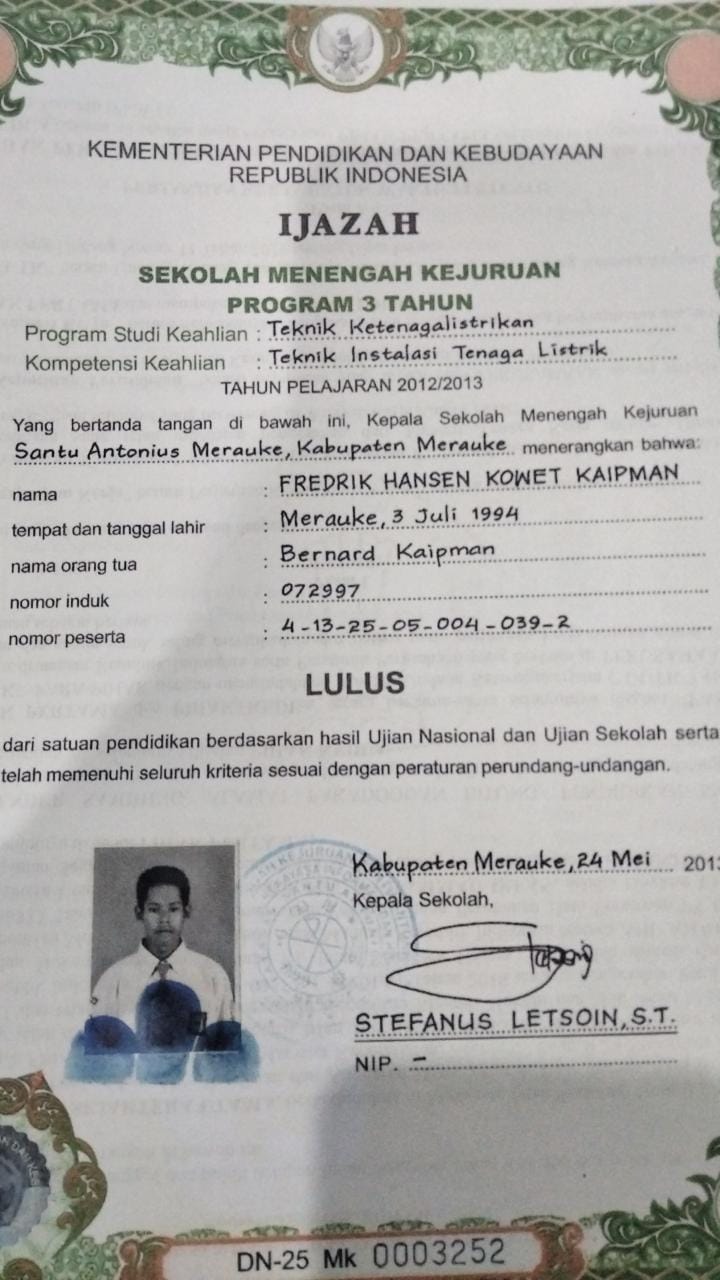 KEMENTERIAN PENDIDIKAN DAN KEBUDAYAAN
REPUBLIK INDONESIA
IJAZAH
SEKOLAH MENENGAH KEJURUAN
PROGRAM 3 TAHUN
Program Studi Keahlian : Teknik Ketenagalistrikan
Kompetensi Keahlian : Teknik Instalasi Tenaga Listrik
TAHUN PELAJARAN 2012/2013
Yang bertanda tangan di bawah ini, Kepala Sekolah Menengah Kejuruan
Santu Antonius Merauke, Kabupaten Merauke menerangkan bahwa:
nama : FREDRIK HANSEN KOWET KAIPMAN
tempat dan tanggal lahir : Merauke, 3 Juli 1994
nama orang tua : Bernard Kaipman
nomor induk : 072997
nomor peserta : 4-13-25-05-004-039-2
LULUS
dari satuan pendidikan berdasarkan hasil Ujian Nasional dan Ujian Sekolah serta
telah memenuhi seluruh kriteria sesuai dengan peraturan perundang-undangan.
Kabupaten Merauke, 24 Mei 2013
Kepala Sekolah,
STEFANUS LETSOIN, S.T.
NIP. -
DN-25 Mk 0003252